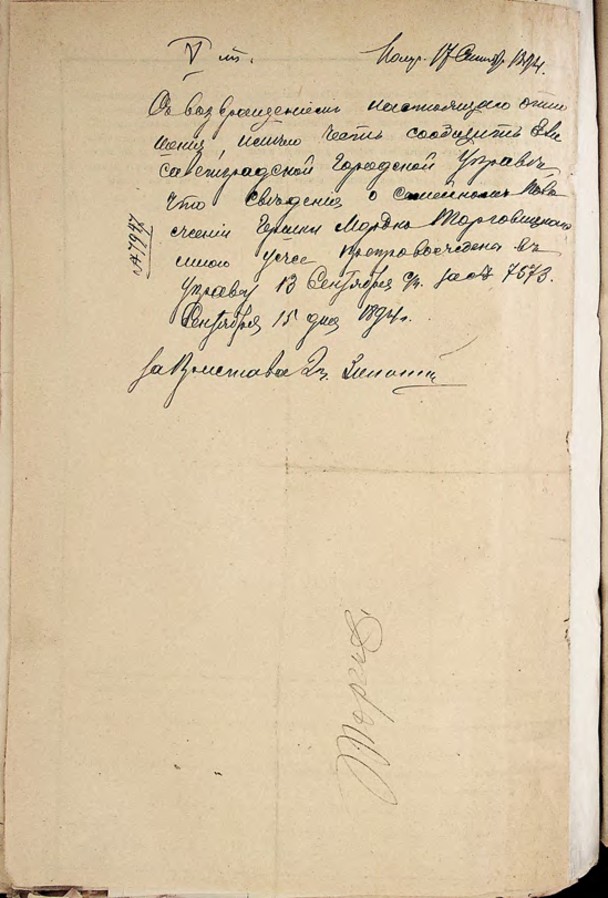 V ст. Получ. 17 Сентяб. 1894.
Съ возвращеніемъ настоящаго отно
шенія имѣю честь сообщить Ели
саветградской Городской Управѣ
что свѣденія о семейномъ поло
женіи Гершки Мордко Торговицкаго
мною уже препровождена въ
Управу 13 Сентября с/г. за № 7573.
Сентября 15 дня 1894 г.
№ 7947
за Пристава
Торгов